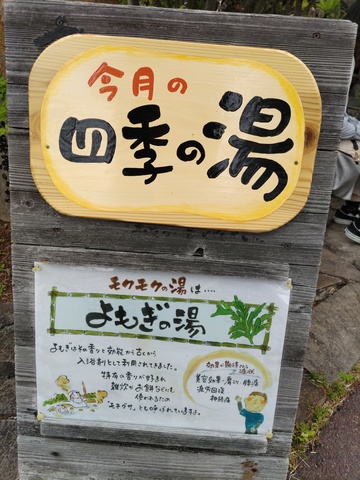 今月の
四季の湯
モクモクの湯は‥‥
よもぎの湯
よもぎはその香りと効能から古くから
入浴剤として利用されてきました。
特有の香りが好まれ
雑炊やお餅などにも
使われるため
モチグサ。とも呼ばれていますよ。
美容効果・肩こり・腰痛
疲労回復
神経痛